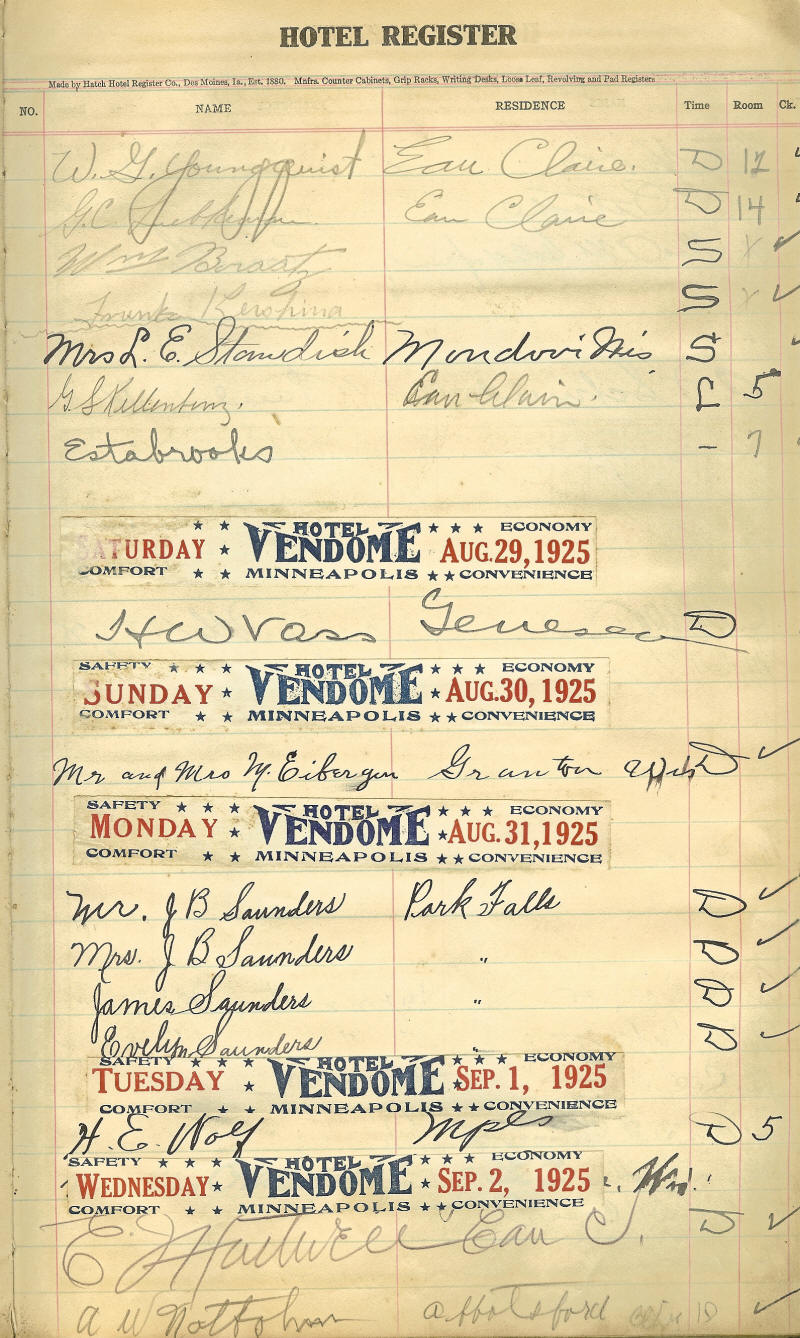 HOTEL REGISTER
Made by Hatch Hotel Register Co., Des Moines, Ia., Est. 1880. Mnfrs. Counter Cabinets, Grip Racks, Writing Desks, Loose Leaf, Revolving and Pad Registers
NO. NAME RESIDENCE Time Room Ck.
W. G. Youngquist Eau Claire. D 12 ✓
G.C. Eau Claire D 14
Wm S X ✓
Frank S X ✓
Mrs L. E. Standish Mondovi Wis S
G. S. Eau Claire. L 5
Estabrooks – 7
★ ★ HOTEL ★ ★ ★ ECONOMY
SATURDAY ★ VENDOME AUG. 29, 1925
COMFORT ★ ★ MINNEAPOLIS ★ ★ CONVENIENCE
H W Vass D
SAFETY ★ ★ ★ HOTEL ★ ★ ★ ECONOMY
SUNDAY ★ VENDOME ★ AUG. 30, 1925
COMFORT ★ ★ MINNEAPOLIS ★ ★ CONVENIENCE
Mr and Mrs M. Eibergen Granton Wis D ✓
SAFETY ★ ★ ★ HOTEL ★ ★ ★ ECONOMY
MONDAY ★ VENDOME ★ AUG. 31, 1925
COMFORT ★ ★ MINNEAPOLIS ★ ★ CONVENIENCE
Mr. J B Saunders Park Falls D ✓
Mrs. J B Saunders " D ✓
James Saunders " D ✓
Evelyn Saunders " D ✓
SAFETY ★ ★ ★ HOTEL ★ ★ ★ ECONOMY
TUESDAY ★ VENDOME ★ SEP. 1, 1925
COMFORT ★ ★ MINNEAPOLIS ★ ★ CONVENIENCE
H. E. Wolf Mpls D 5
SAFETY ★ ★ ★ HOTEL ★ ★ ★ ECONOMY
WEDNESDAY ★ VENDOME ★ SEP. 2, 1925 Wis.
COMFORT ★ ★ MINNEAPOLIS ★ ★ CONVENIENCE
E. Eau C. D ✓
A W Abbotsford ✓